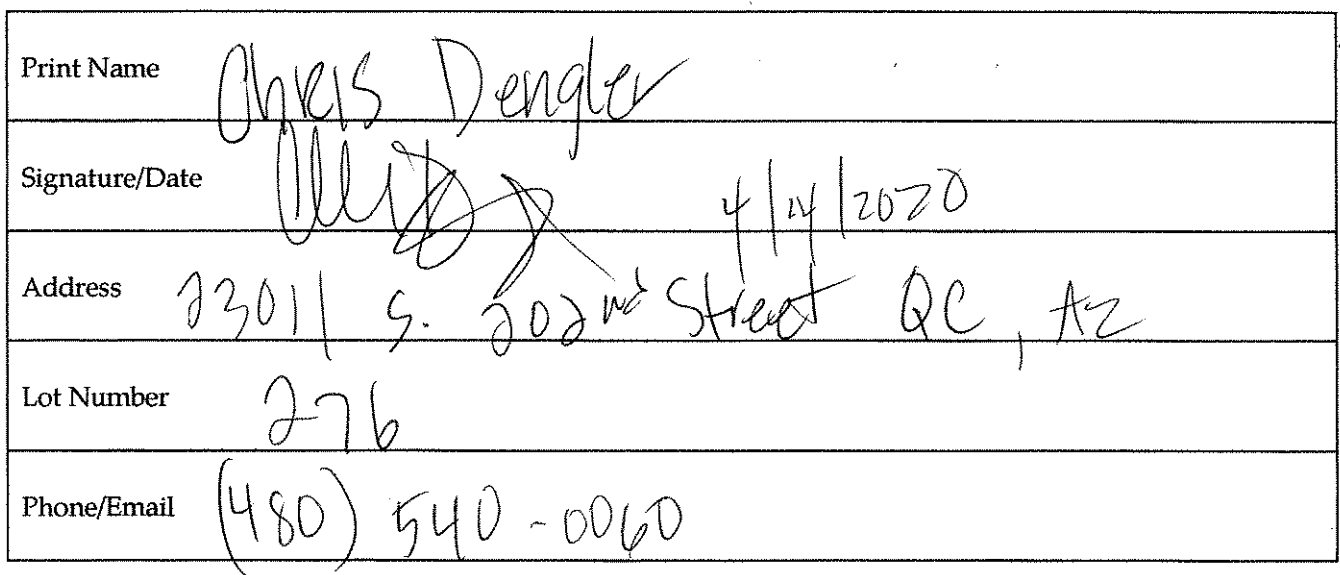 Print Name Chris Dengler
Signature/Date 4/14/2020
Address 23011 S. 202nd Street QC, AZ
Lot Number 276
Phone/Email (480) 540-0060